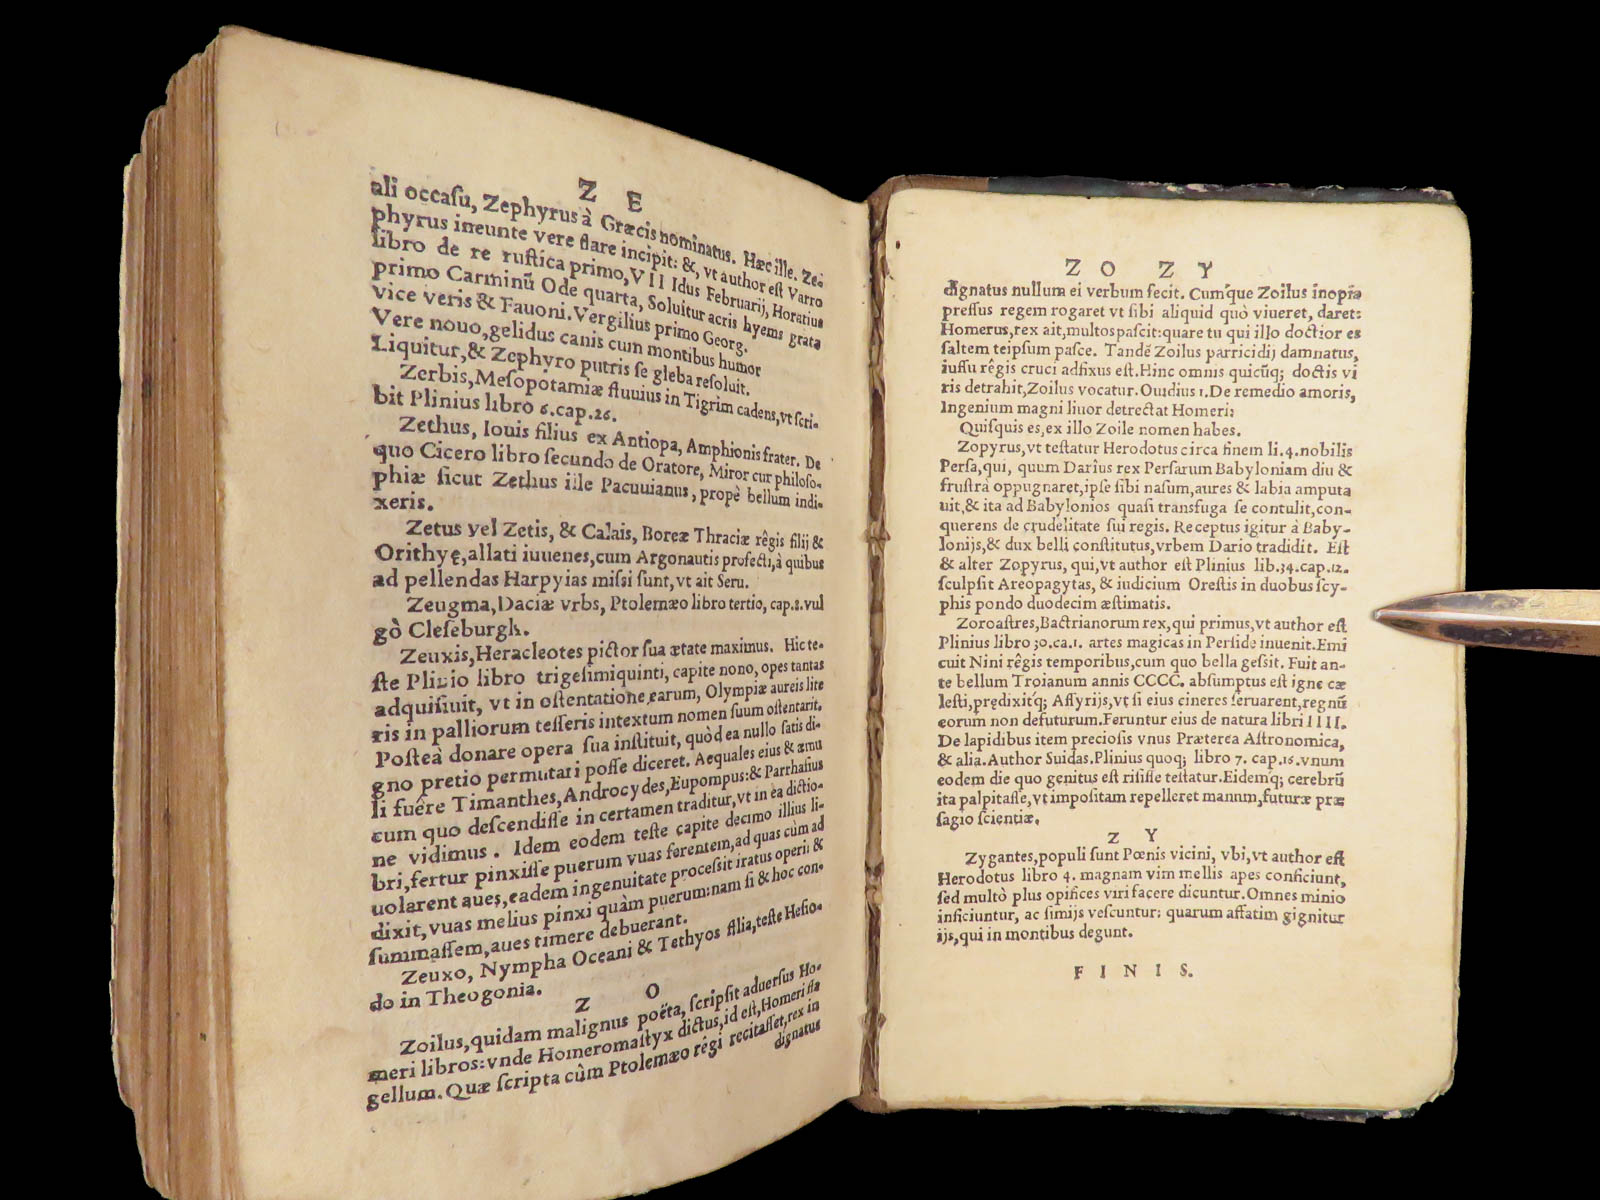 Z E
ali occaſu, Zephyrus à Græcis nominatus. Hæc ille. Ze-
phyrus ineunte vere flare incipit: &, vt author eſt Varro
libro de re ruſtica primo, VII Idus Februarij, Horatius
primo Carminū Ode quarta, Soluitur acris hyems grata
vice veris & Fauoni. Vergilius primo Georg.
Vere nouo, gelidus canis cum montibus humor
Liquitur, & Zephyro putris ſe gleba reſoluit.
Zerbis, Meſopotamiæ fluuius in Tigrim cadens, vt ſcri-
bit Plinius libro 6. cap. 26.
Zethus, Iouis filius ex Antiopa, Amphionis frater. De
quo Cicero libro ſecundo de Oratore, Miror cur philoſo-
phiæ ſicut Zethus ille Pacuuianus, propè bellum indi-
xeris.
Zetus vel Zetis, & Calais, Boreæ Thraciæ rêgis filij &
Orithyę, allati iuuenes, cum Argonautis profecti, à quibus
ad pellendas Harpyias miſſi ſunt, vt ait Seru.
Zeugma, Daciæ vrbs, Ptolemæo libro tertio, cap. 8. vul
gò Cleſeburgk.
Zeuxis, Heracleotes pictor ſua ætate maximus. Hic te-
ſte Plinio libro trigeſimiquinti, capite nono, opes tantas
adquiſiuit, vt in oſtentatione earum, Olympiæ aureis lite
ris in palliorum teſſeris intextum nomen ſuum oſtentarit.
Poſteà donare opera ſua inſtituit, quòd ea nullo ſatis di-
gno pretio permutari poſſe diceret. Aequales eius & æmu
li fuêre Timanthes, Androcydes, Eupompus: & Parrhaſius
cum quo deſcendiſſe in certamen traditur, vt in ea dictio-
ne vidimus. Idem eodem teſte capite decimo illius li-
bri, fertur pinxiſſe puerum vuas ferentem, ad quas cùm ad
uolarent aues, eadem ingenuitate proceſſit iratus operi: &
dixit, vuas melius pinxi quàm puerum: nam ſi & hoc con-
ſummaſſem, aues timere debuerant.
Zeuxo, Nympha Oceani & Tethyos filia, teſte Heſio-
do in Theogonia.
Z O
Zoilus, quidam malignus poëta, ſcripſit aduerſus Ho-
meri libros: vnde Homeromaſtyx dictus, id eſt, Homeri fla
gellum. Quæ ſcripta cùm Ptolemæo rêgi recitaſſet, rex in
dignatus
Z O Z Y
dignatus nullum ei verbum fecit. Cumq́ue Zoilus inopia
preſſus regem rogaret vt ſibi aliquid quò viueret, daret:
Homerus, rex ait, multos paſcit: quare tu qui illo doctior es
ſaltem teipſum paſce. Tandē Zoilus parricidij damnatus,
iuſſu rêgis cruci adfixus eſt. Hinc omnis quicūq; doctis vi
ris detrahit, Zoilus vocatur. Ouidius 1. De remedio amoris,
Ingenium magni liuor detrectat Homeri:
Quiſquis es, ex illo Zoile nomen habes.
Zopyrus, vt teſtatur Herodotus circa finem li. 4. nobilis
Perſa, qui, quum Darius rex Perſarum Babyloniam diu &
fruſtrà oppugnaret, ipſe ſibi naſum, aures & labia amputa
uit, & ita ad Babylonios quaſi transfuga ſe contulit, con-
querens de crudelitate ſui regis. Receptus igitur à Baby-
lonijs, & dux belli conſtitutus, vrbem Dario tradidit. Eſt
& alter Zopyrus, qui, vt author eſt Plinius lib. 34. cap. 12.
ſculpſit Areopagytas, & iudicium Oreſtis in duobus ſcy-
phis pondo duodecim æſtimatis.
Zoroaſtres, Bactrianorum rex, qui primus, vt author eſt
Plinius libro 30. ca. 1. artes magicas in Perſide inuenit. Emi
cuit Nini rêgis temporibus, cum quo bella geſſit. Fuit an-
te bellum Troianum annis CCCC. abſumptus eſt igne cæ
leſti, prędixitq́; Aſſyrijs, vt ſi eius cineres ſeruarent, regnū
eorum non defuturum. Feruntur eius de natura libri IIII.
De lapidibus item precioſis vnus Præterea Aſtronomica,
& alia. Author Suidas. Plinius quoq; libro 7. cap. 16. vnum
eodem die quo genitus eſt riſiſſe teſtatur. Eidemq́; cerebrū
ita palpitaſſe, vt impoſitam repelleret manum, futuræ præ
ſagio ſcientiæ.
Z Y
Zygantes, populi ſunt Pœnis vicini, vbi, vt author eſt
Herodotus libro 4. magnam vim mellis apes conficiunt,
ſed multò plus opifices viri facere dicuntur. Omnes minio
inficiuntur, ac ſimijs veſcuntur: quarum affatim gignitur
ijs, qui in montibus degunt.
F I N I S.